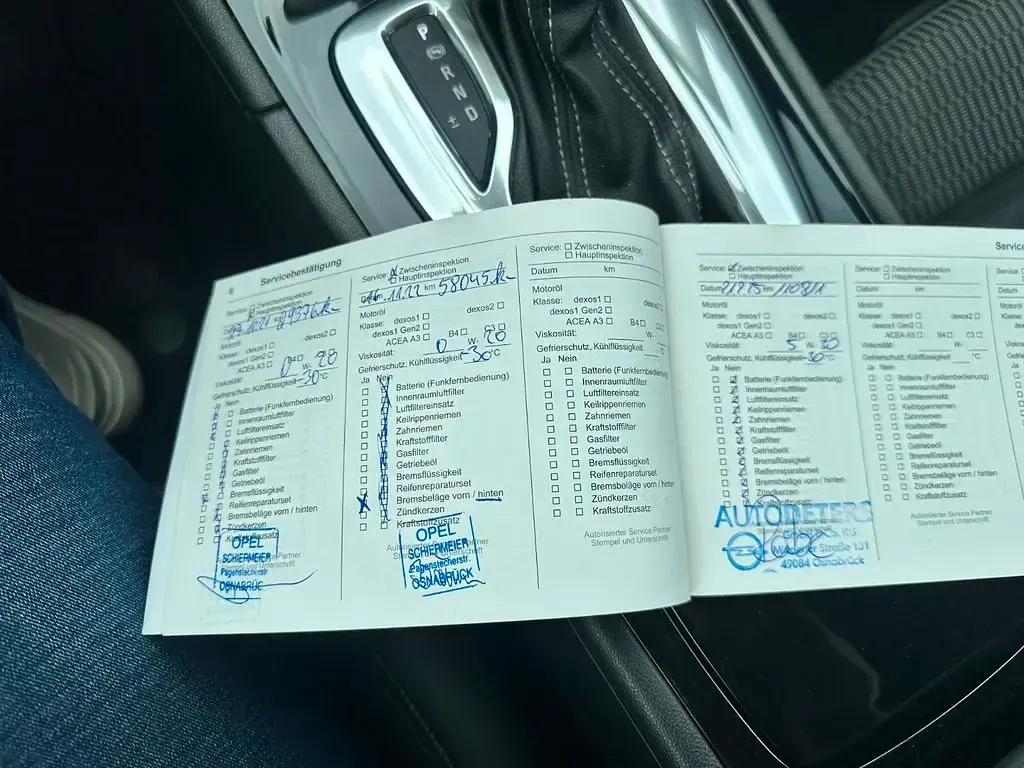 P
R
N
D
±
6 Servicebestätigung
Service: Zwischeninspektion
Hauptinspektion
29376 km
Motoröl
Klasse: dexos1 dexos2
dexos1 Gen2
ACEA A3 B4
Viskosität: 0 W- 20
Gefrierschutz, Kühlflüssigkeit -30 °C
Ja Nein
Batterie (Funkfernbedienung)
Innenraumluftfilter
Luftfiltereinsatz
Keilrippenriemen
Zahnriemen
Kraftstofffilter
Gasfilter
Getriebeöl
Bremsflüssigkeit
Reifenreparaturset
Bremsbeläge vorn / hinten
Zündkerzen
Kraftstoffzusatz
Partner
Stempel und Unterschrift
OPEL
SCHIERMEIER
Pagenstecherstr.
OSNABRÜCK
Service: Zwischeninspektion
Hauptinspektion
11.22 km 58045 km
Motoröl
Klasse: dexos1 dexos2
dexos1 Gen2
ACEA A3 B4 C3
Viskosität: 0 W- 20
Gefrierschutz, Kühlflüssigkeit -30 °C
Ja Nein
Batterie (Funkfernbedienung)
Innenraumluftfilter
Luftfiltereinsatz
Keilrippenriemen
Zahnriemen
Kraftstofffilter
Gasfilter
Getriebeöl
Bremsflüssigkeit
Reifenreparaturset
Bremsbeläge vorn / hinten
Zündkerzen
Kraftstoffzusatz
OPEL
SCHIERMEIER
Pagenstecherstr.
OSNABRÜCK
Service: Zwischeninspektion
Hauptinspektion
Datum km
Motoröl
Klasse: dexos1 dexos2
dexos1 Gen2
ACEA A3 B4 C3
Viskosität: W-
Gefrierschutz, Kühlflüssigkeit °C
Ja Nein
Batterie (Funkfernbedienung)
Innenraumluftfilter
Luftfiltereinsatz
Keilrippenriemen
Zahnriemen
Kraftstofffilter
Gasfilter
Getriebeöl
Bremsflüssigkeit
Reifenreparaturset
Bremsbeläge vorn / hinten
Zündkerzen
Kraftstoffzusatz
Autorisierter Service Partner
Stempel und Unterschrift
Service: Zwischeninspektion
Hauptinspektion
Datum km
Motoröl
Klasse: dexos1 dexos2
dexos1 Gen2
ACEA A3 B4 C3
Viskosität: 5 W- 30
Gefrierschutz, Kühlflüssigkeit -30 °C
Ja Nein
Batterie (Funkfernbedienung)
Innenraumluftfilter
Luftfiltereinsatz
Keilrippenriemen
Zahnriemen
Kraftstofffilter
Gasfilter
Getriebeöl
Bremsflüssigkeit
Reifenreparaturset
Bremsbeläge vorn / hinten
Zündkerzen
Kraftstoffzusatz
AUTODETERS
Co. KG
Straße 131
49084 Osnabrück
Service: Zwischeninspektion
Hauptinspektion
Datum km
Motoröl
Klasse: dexos1 dexos2
dexos1 Gen2
ACEA A3 B4 C3
Viskosität: W-
Gefrierschutz, Kühlflüssigkeit °C
Ja Nein
Batterie (Funkfernbedienung)
Innenraumluftfilter
Luftfiltereinsatz
Keilrippenriemen
Zahnriemen
Kraftstofffilter
Gasfilter
Getriebeöl
Bremsflüssigkeit
Reifenreparaturset
Bremsbeläge vorn / hinten
Zündkerzen
Kraftstoffzusatz
Autorisierter Service Partner
Stempel und Unterschrift
Service:
Datum
Motoröl
Klasse:
Viskosität:
Gefrierschutz
Ja Nein